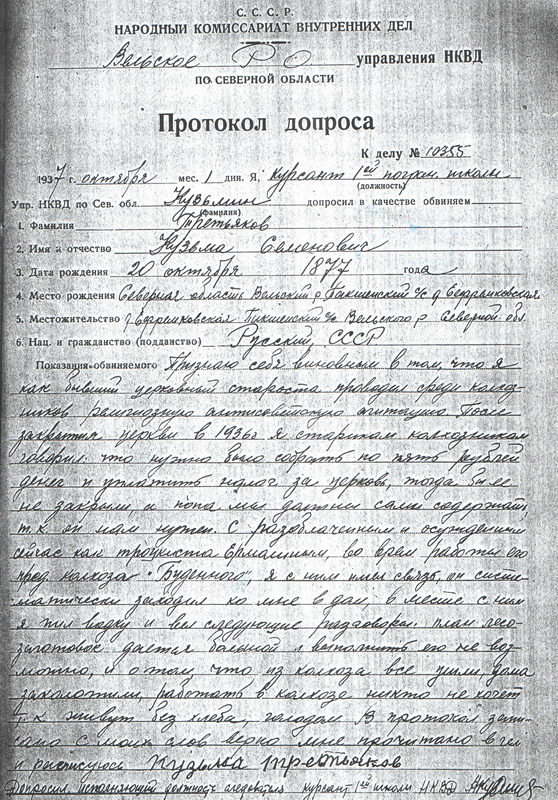 С. С. С. Р.
НАРОДНЫЙ КОМИССАРИАТ ВНУТРЕННИХ ДЕЛ
Вельское РО управления НКВД
ПО СЕВЕРНОЙ ОБЛАСТИ
Протокол допроса
К делу № 10355
1937 г. октября мес. 1 дня. Я, курсант 1ей погран. школы
(должность)
Упр. НКВД по Сев. обл. Кузьмин допросил в качестве обвиняем
(фамилия)
1. Фамилия Третьяков
2. Имя и отчество Кузьма Семенович
3. Дата рождения 20 октября 1877 года
4. Место рождения Северная область Вельский р. Пакшенский с/с д Ефремковская
5. Местожительство д. Ефремковская Пакшенский с/с Вельского р Северной обл.
6. Нац. и гражданство (подданство) Русский, СССР
Показания обвиняемого Признаю себя виновным в том, что я
как бывший церковный староста проводил среди колхоз-
ников религиозную антисоветскую агитацию После
закрытия церкви в 1936г я старикам колхозникам
говорил что нужно было собрать по пять рублей
денег и уплатить налог за церковь, тогда бы ее
не закрыли и попа мы должны сами содержать
т.к он нам нужен. С разоблаченным и осужденным
сейчас как троцкиста Ермолиным, во время работы его
пред. колхоза "Буденного", я с ним имел связь, он систе-
матически заходил ко мне в дом, в месте с ним
я пил водку и вел следующие разговоры. план лесо-
заготовок дается большой и выполнить его не воз-
можно, и о том, что из колхоза все ушли дома
заколотили, работать в колхозе никто не хочет
т.к живут без хлеба, голодом. В протокол запи-
сано с моих слов верно мне прочитано в чем
и расписуюсь Кузьма Третьяков
Допросил исполняющий должность следователя курсант 1ей школы НКВД